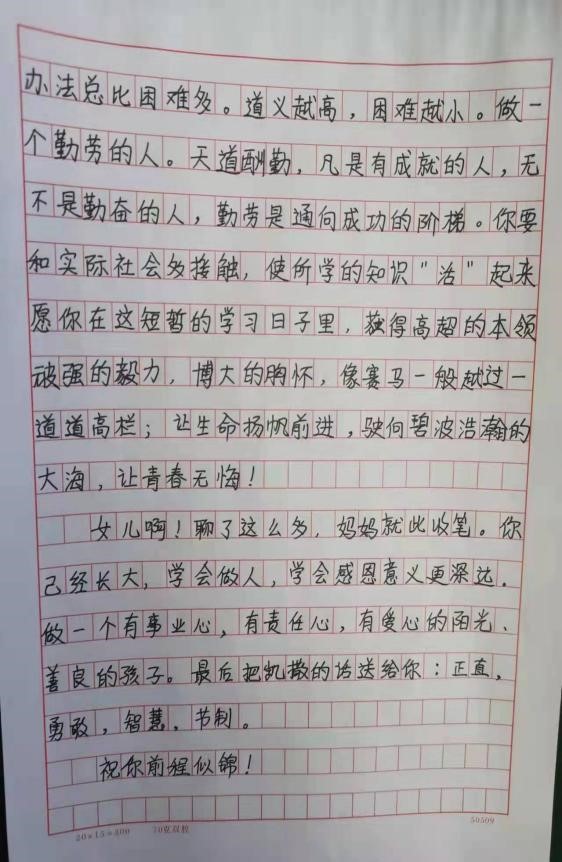 办法总比困难多。道义越高，困难越小。做一
个勤劳的人。天道酬勤，凡是有成就的人，无
不是勤奋的人，勤劳是通向成功的阶梯。你要
和实际社会多接触，使所学的知识"活"起来
愿你在这短暂的学习日子里，获得高超的本领
顽强的毅力，博大的胸怀，像赛马一般越过一
道道高栏；让生命扬帆前进，驶向碧波浩瀚的
大海，让青春无悔！
女儿啊！聊了这么多，妈妈就此收笔。你
已经长大，学会做人，学会感恩意义更深达．
做一个有事业心，有责任心，有爱心的阳光、
善良的孩子。最后把凯撒的话送给你：正直，
勇敢，智慧、节制。
祝你前程似锦！
20×15=300 70克双胶 50509